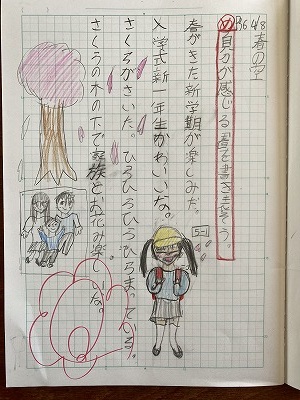 P.6 4/8
春の空
め 自分が感じる春を書き表そう。
春がきた新学期が楽しみだ。
5-1
入学式新一年生かわいいな。
さくらがさいた。ひらひらひらひらまっている。
さくらの木の下で家族とお花み楽しいな。